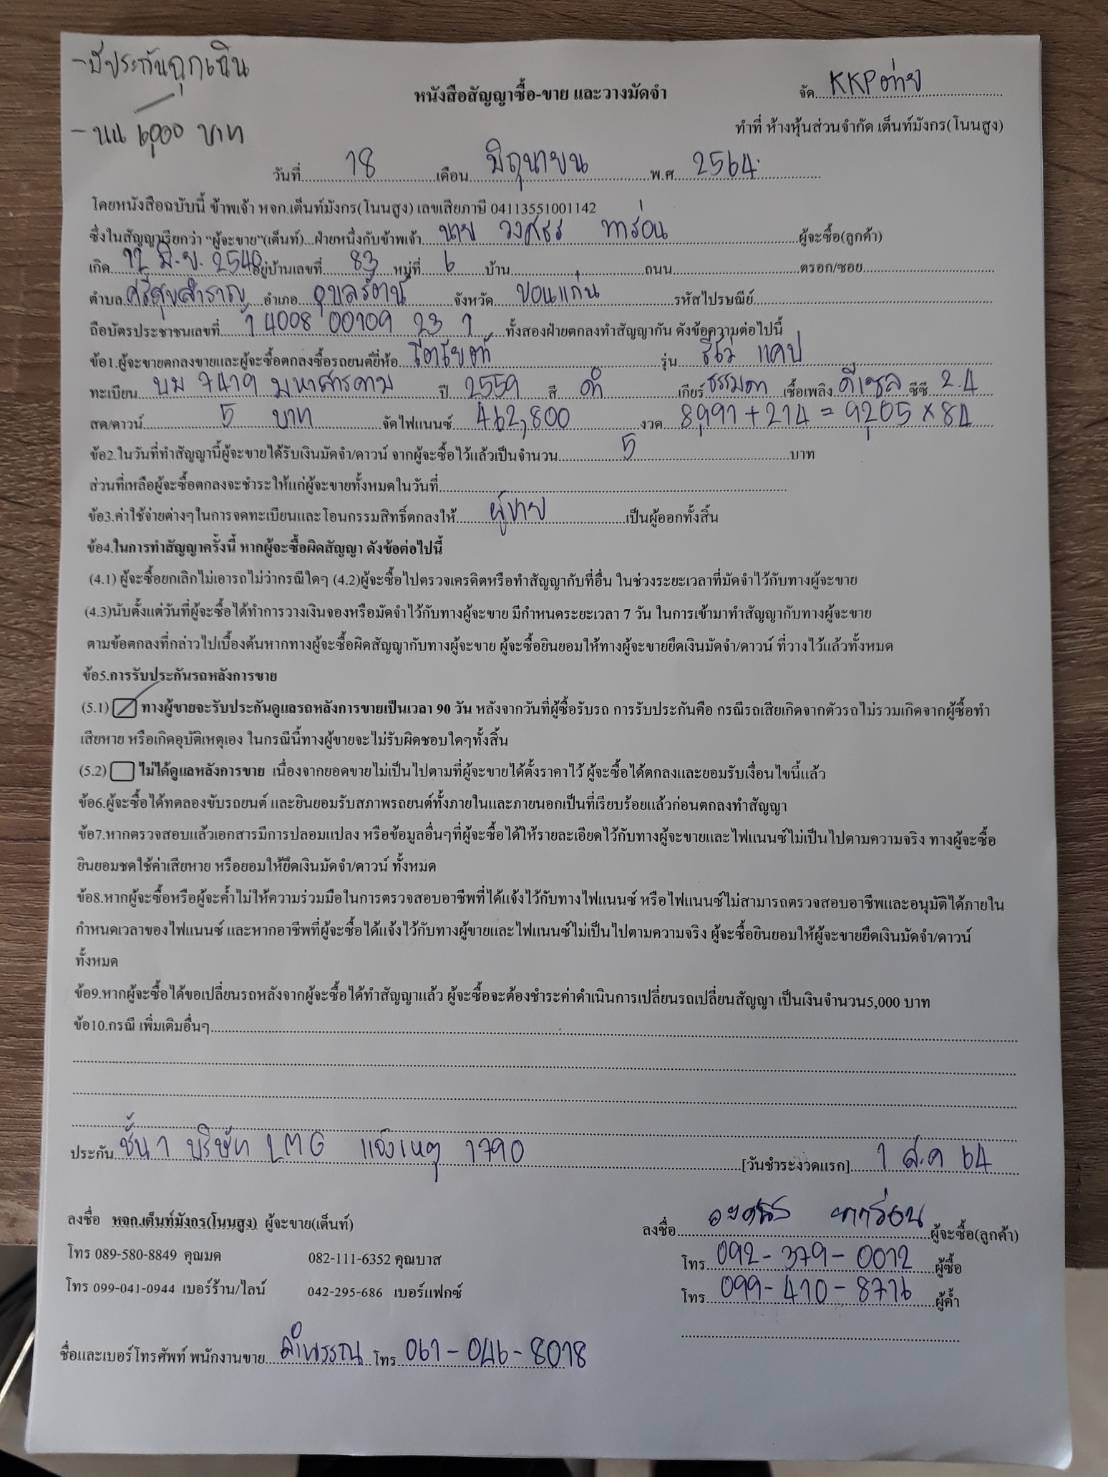 -มีประกันฉุกเฉิน
หนังสือสัญญาซื้อ-ขาย และวางมัดจำ
จัด KKP
- นน 6,000 บาท
ทำที่ ห้างหุ้นส่วนจำกัด เต็นท์มังกร(โนนสูง)
วันที่ 18 เดือน มิถุนายน พ.ศ. 2564
โดยหนังสือฉบับนี้ ข้าพเจ้า หจก.เต็นท์มังกร(โนนสูง) เลขเสียภาษี 04113551001142
ซึ่งในสัญญาเรียกว่า "ผู้จะขาย"(เต็นท์)...ฝ่ายหนึ่งกับข้าพเจ้า นาย วงศธร ทาร่อน ผู้จะซื้อ(ลูกค้า)
เกิด 12 มิ.ย. 2540 อยู่บ้านเลขที่ 83 หมู่ที่ 6 บ้าน ถนน ตรอก/ซอย
ตำบล ศรีสุขสำราญ อำเภอ อุบลรัตน์ จังหวัด ขอนแก่น รหัสไปรษณีย์
ถือบัตรประชาชนเลขที่ 1 4008 00109 23 1 ทั้งสองฝ่ายตกลงทำสัญญากัน ดังข้อความต่อไปนี้
ข้อ1.ผู้จะขายตกลงขายและผู้จะซื้อตกลงซื้อรถยนต์ยี่ห้อ โตโยต้า รุ่น รีโว่ แคป
ทะเบียน บม 7419 มหาสารคาม ปี 2559 สี ดำ เกียร์ ธรรมดา เชื้อเพลิง ดีเซล ซีซี 2.4
สด/ดาวน์ 5 บาท จัดไฟแนนซ์ 462,800 งวด 8,991+214 = 9,205 x 84
ข้อ2.ในวันที่ทำสัญญานี้ผู้จะขายได้รับเงินมัดจำ/ดาวน์ จากผู้จะซื้อไว้แล้วเป็นจำนวน 5 บาท
ส่วนที่เหลือผู้จะซื้อตกลงจะชำระให้แก่ผู้จะขายทั้งหมดในวันที่
ข้อ3.ค่าใช้จ่ายต่างๆในการจดทะเบียนและโอนกรรมสิทธิ์ตกลงให้ ผู้ขาย เป็นผู้ออกทั้งสิ้น
ข้อ4.ในการทำสัญญาครั้งนี้ หากผู้จะซื้อผิดสัญญา ดังข้อต่อไปนี้
(4.1) ผู้จะซื้อยกเลิกไม่เอารถไม่ว่ากรณีใดๆ (4.2)ผู้จะซื้อไปตรวจเครดิตหรือทำสัญญากับที่อื่น ในช่วงระยะเวลาที่มัดจำไว้กับทางผู้จะขาย
(4.3)นับตั้งแต่วันที่ผู้จะซื้อได้ทำการวางเงินจองหรือมัดจำไว้กับทางผู้จะขาย มีกำหนดระยะเวลา 7 วัน ในการเข้ามาทำสัญญากับทางผู้จะขาย
ตามข้อตกลงที่กล่าวไปเบื้องต้นหากทางผู้จะซื้อผิดสัญญากับทางผู้จะขาย ผู้จะซื้อยินยอมให้ทางผู้จะขายยึดเงินมัดจำ/ดาวน์ ที่วางไว้แล้วทั้งหมด
ข้อ5.การรับประกันรถหลังการขาย
(5.1) ทางผู้ขายจะรับประกันดูแลรถหลังการขายเป็นเวลา 90 วัน หลังจากวันที่ผู้ซื้อรับรถ การรับประกันคือ กรณีรถเสียเกิดจากตัวรถไม่รวมเกิดจากผู้ซื้อทำ
เสียหาย หรือเกิดอุบัติเหตุเอง ในกรณีนี้ทางผู้ขายจะไม่รับผิดชอบใดๆทั้งสิ้น
(5.2) ไม่ได้ดูแลหลังการขาย เนื่องจากยอดขายไม่เป็นไปตามที่ผู้จะขายได้ตั้งราคาไว้ ผู้จะซื้อได้ตกลงและยอมรับเงื่อนไขนี้แล้ว
ข้อ6.ผู้จะซื้อได้ทดลองขับรถยนต์ และยินยอมรับสภาพรถยนต์ทั้งภายในและภายนอกเป็นที่เรียบร้อยแล้วก่อนตกลงทำสัญญา
ข้อ7.หากตรวจสอบแล้วเอกสารมีการปลอมแปลง หรือข้อมูลอื่นๆที่ผู้จะซื้อได้ให้รายละเอียดไว้กับทางผู้จะขายและไฟแนนซ์ไม่เป็นไปตามความจริง ทางผู้จะซื้อ
ยินยอมชดใช้ค่าเสียหาย หรือยอมให้ยึดเงินมัดจำ/ดาวน์ ทั้งหมด
ข้อ8.หากผู้จะซื้อหรือผู้จะค้ำไม่ให้ความร่วมมือในการตรวจสอบอาชีพที่ได้แจ้งไว้กับทางไฟแนนซ์ หรือไฟแนนซ์ไม่สามารถตรวจสอบอาชีพและอนุมัติได้ภายใน
กำหนดเวลาของไฟแนนซ์ และหากอาชีพที่ผู้จะซื้อได้แจ้งไว้กับทางผู้ขายและไฟแนนซ์ไม่เป็นไปตามความจริง ผู้จะซื้อยินยอมให้ผู้จะขายยึดเงินมัดจำ/ดาวน์
ทั้งหมด
ข้อ9.หากผู้จะซื้อได้ขอเปลี่ยนรถหลังจากผู้จะซื้อได้ทำสัญญาแล้ว ผู้จะซื้อจะต้องชำระค่าดำเนินการเปลี่ยนรถเปลี่ยนสัญญา เป็นเงินจำนวน5,000 บาท
ข้อ10.กรณี เพิ่มเติมอื่นๆ
ประกัน ชั้น 1 บริษัท LMG แจ้งเหตุ 1790 [วันชำระงวดแรก] 1 ส.ค 64
ลงชื่อ หจก.เต็นท์มังกร(โนนสูง) ผู้จะขาย(เต็นท์)
ลงชื่อ ผู้จะซื้อ(ลูกค้า)
โทร 089-580-8849 คุณมด 082-111-6352 คุณบาส
โทร 092-379-0012 ผู้ซื้อ
โทร 099-041-0944 เบอร์ร้าน/ไลน์ 042-295-686 เบอร์แฟกซ์
โทร 099-410-8716 ผู้ค้ำ
ชื่อและเบอร์โทรศัพท์ พนักงานขาย ลำพรรณ โทร 061-046-8018